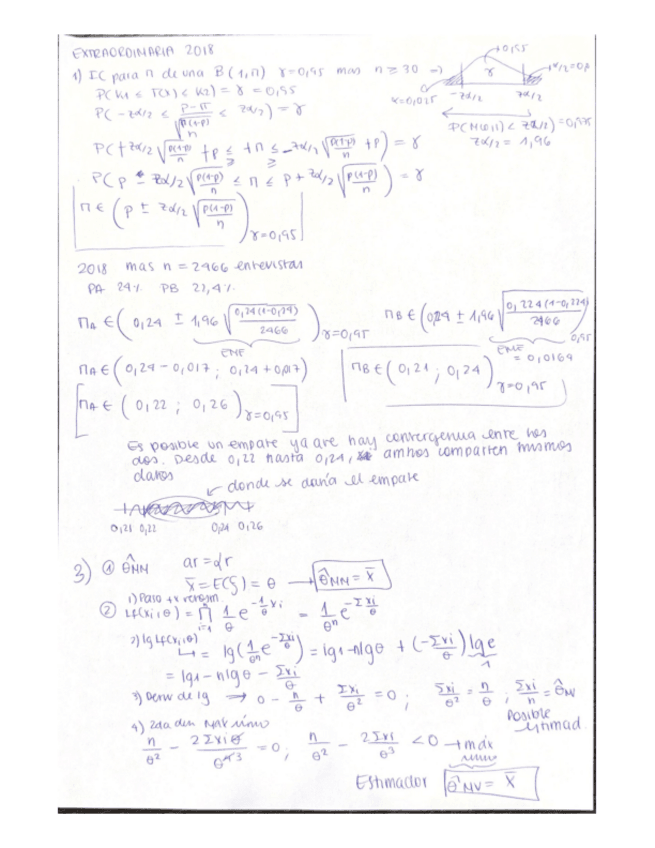 EXTRAORDINARIA 2018
1) IC para π de una B(1,π) γ=0,95 mas n≥30 →
γ α/2=0,0
α=0,025 -zα/2 zα/2
P(k1 ≤ T(x) ≤ k2) = γ = 0,95
P(-zα/2 ≤ p-π / √(p(1-p)/n) ≤ zα/2) = γ
P(N(0,1) < zα/2) = 0,975
zα/2 = 1,96
P(+zα/2 √(p(1-p)/n) +p ≥ +π ≥ -zα/2 √(p(1-p)/n) +p) = γ
P(p - zα/2 √(p(1-p)/n) ≤ π ≤ p + zα/2 √(p(1-p)/n)) = γ
π ∈ (p ± zα/2 √(p(1-p)/n)) γ=0,95
2018 mas n = 2466 entrevistas
PA 24% PB 22,4%
πA ∈ (0,24 ± 1,96 √(0,24(1-0,24)/2466)) γ=0,95
πB ∈ (0,24 ± 1,96 √(0,224(1-0,224)/2466)) 0,95
EME
EME = 0,0164
πA ∈ (0,24 - 0,017 ; 0,24 + 0,017)
πB ∈ (0,21 ; 0,24) γ=0,95
πA ∈ (0,22 ; 0,26) γ=0,95
Es posible un empate ya que hay convergencia entre los
dos. Desde 0,22 hasta 0,24, ambos comparten mismos
datos
donde se daría el empate
0,21 0,22 0,24 0,26
3) ① θ̂MM ar = αr
x̄ = E(ξ) = θ → θ̂MM = x̄
1) Paso
② Lf(xi,θ) = ∏ i=1 n 1/θ e^(-1/θ xi) = 1/θ^n e^(-Σxi/θ)
2) lg Lf(xi,θ)
= lg(1/θ^n e^(-Σxi/θ)) = lg1 - nlgθ + (-Σxi/θ) lg e
1
= lg1 - nlgθ - Σxi/θ
3) Deriv de lg → 0 - n/θ + Σxi/θ² = 0 ; Σxi/θ² = n/θ ; Σxi/n = θ̂MV
Posible
estimad
4) 2da der Máximo
n/θ² - 2Σxiθ/θ^4 3 = 0 ; n/θ² - 2Σxi/θ³ < 0 → máx
imo
Estimador θ̂MV = x̄